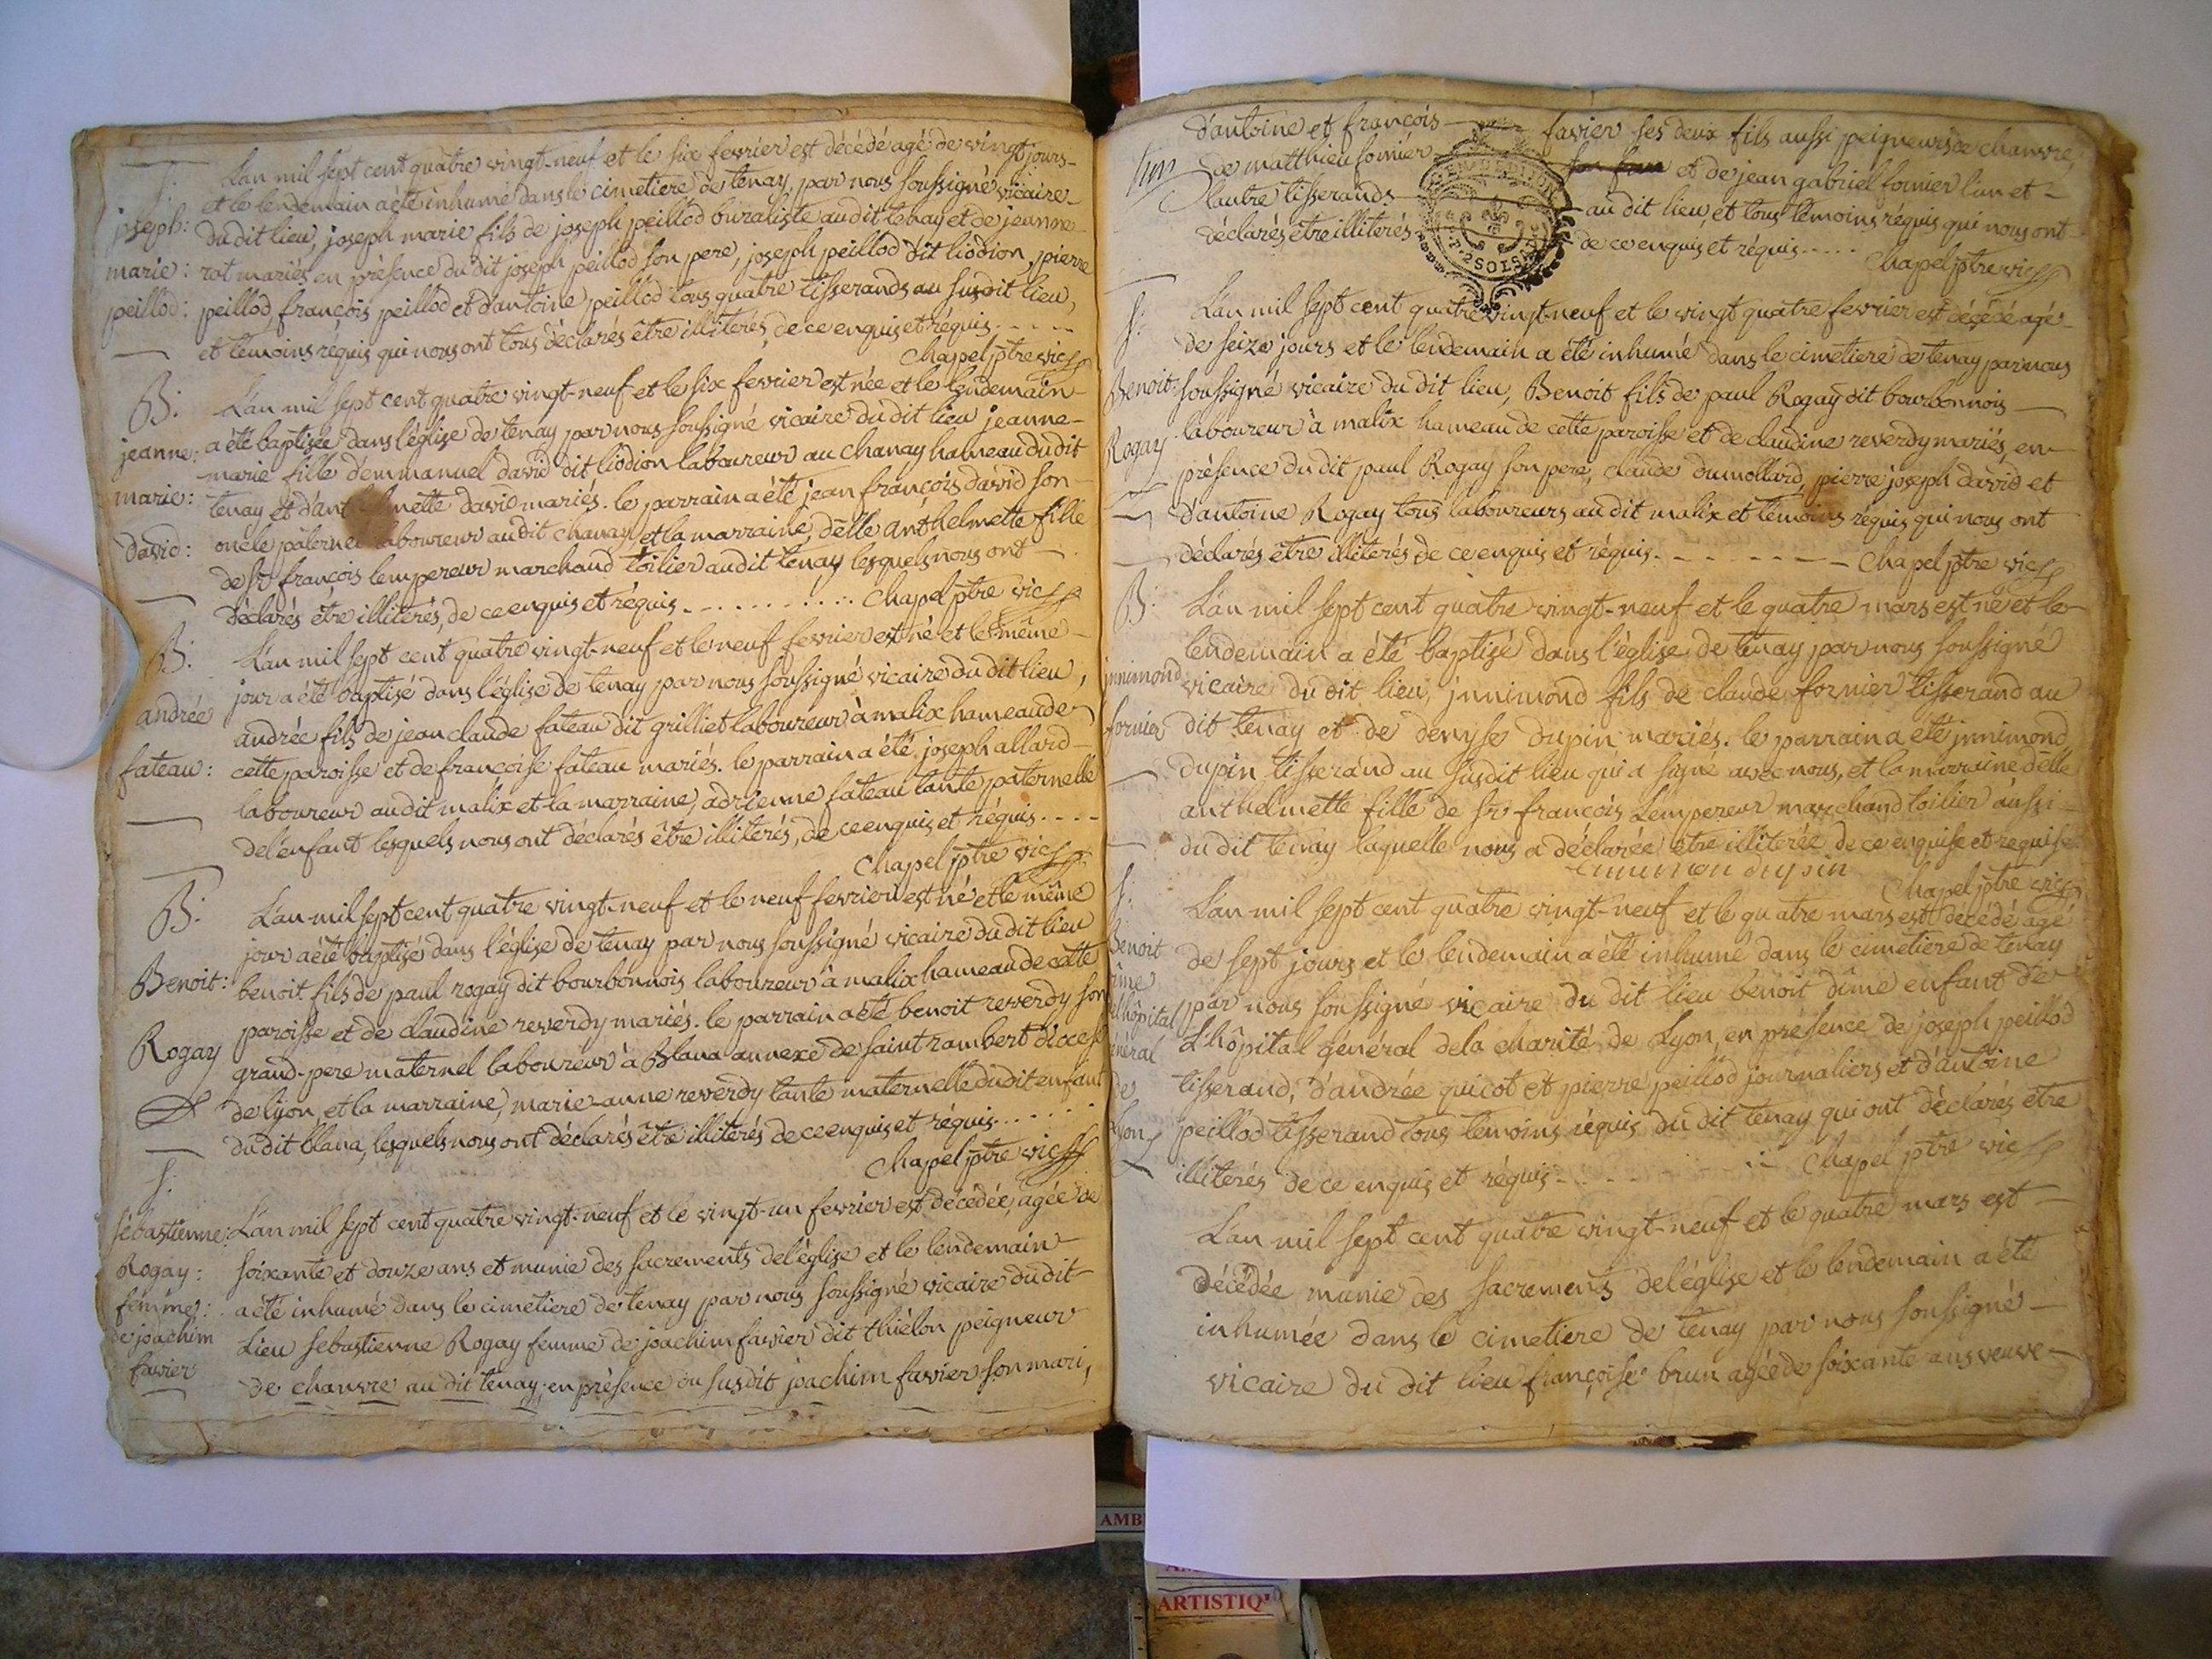 S:
joseph:
marie:
peillod:
L'an mil sept cent quatre vingt-neuf et le six fevrier est décédé agé de vingt jours
et le lendemain a été inhumé dans le cimetiere de tenay, par nous soussigné vicaire
du dit lieu, joseph marie fils de joseph peillod buraliste au dit tenay et de jeanne
rat mariés, en présence du dit joseph peillod son pere, joseph peillod dit liodion, pierre
peillod, françois peillod et d'antoine peillod tous quatre tisserands au susdit lieu,
et témoins réquis qui nous ont tous déclarés être illiterés, de ce enquis et réquis.....
Chapel ptre vic
B:
jeanne:
marie:
david:
L'an mil sept cent quatre vingt-neuf et le six fevrier est née et le lendemain
a été baptisée dans l'église de tenay par nous soussigné vicaire du dit lieu jeanne-
marie fille d'emmanuel david dit liodion laboureur au chanay hameau du dit
tenay et d'ant mette david mariés. le parrain a été jean françois david son
oncle paternel laboureur au dit chanay et la marraine, délle anthelmette fille
de sr françois lempereur marchand toilier au dit tenay lesquels nous ont
déclarés être illiterés, de ce enquis et réquis.......... Chapel ptre vic
B:
andrée
fateau:
L'an mil sept cent quatre vingt-neuf et le neuf fevrier est né et le même
jour a été baptisé dans l'église de tenay par nous soussigné vicaire du dit lieu,
andrée fils de jean claude fateau dit grilliet laboureur à malix hameau de
cette paroisse et de françoise fateau mariés. le parrain a été joseph allard
laboureur au dit malix et la marraine, adrienne fateau tante paternelle
de l'enfant lesquels nous ont déclarés être illiterés, de ce enquis et réquis....
Chapel ptre vic
B:
Benoit:
Rogay
L'an mil sept cent quatre vingt-neuf et le neuf fevrier est né et le même
jour a été baptisé dans l'église de tenay par nous soussigné vicaire du dit lieu
benoit fils de paul rogay dit bourbonnois laboureur à malix hameau de cette
paroisse et de claudine reverdy mariés. le parrain a été benoit reverdy son
grand-pere maternel laboureur à Blana annexe de saint rambert diocese
de lyon, et la marraine, marie-anne reverdy tante maternelle du dit enfant
du dit blana, lesquels nous ont déclarés être illiterés de ce enquis et réquis......
Chapel ptre vic
S:
sébastienne:
Rogay:
femme:
de joachim
favier
L'an mil sept cent quatre vingt-neuf et le vingt-un fevrier est décédée, agée de
soixante et douze ans et munie des sacrements de l'église et le lendemain
a été inhumé dans le cimetiere de tenay par nous soussigné vicaire du dit
Lieu sebastienne Rogay femme de joachim favier dit thiélon peigneur
de chanvre au dit tenay, en présence du susdit joachim favier son mari,
d'antoine et françois favier ses deux fils aussi peigneurs de chanvre,
de matthieu fornier et de jean gabriel fornier l'un et
l'autre tisserands au dit lieu, et tous témoins réquis qui nous ont
déclarés être illiterés de ce enquis et réquis.....
Chapel ptre vic
2 SOLS
S:
Benoit:
Rogay
L'an mil sept cent quatre vingt-neuf et le vingt quatre fevrier est décédé agé
de seize jours et le lendemain a été inhumé dans le cimetiere de tenay par nous
soussigné vicaire du dit lieu, Benoit fils de paul Rogay dit bourbonnois
laboureur à malix hameau de cette paroisse et de claudine reverdy mariés, en
présence du dit paul Rogay son pere, claude dumollard, pierre joseph david et
d'antoine Rogay tous laboureurs au dit malix et témoins réquis qui nous ont
déclarés être illiterés de ce enquis et réquis. Chapel ptre vic
B:
jnnimond
fornier
L'an mil sept cent quatre vingt-neuf et le quatre mars est né et le
lendemain a été baptisé dans l'église de tenay par nous soussigné
vicaire du dit lieu, jnnimond fils de claude fornier tisserand au
dit tenay et de denyse dupin mariés. le parrain a été jnnimond
dupin tisserand au susdit lieu qui a signé avec nous, et la marraine délle
anthelmette fille de sr françois Lempereur marchand toilier aussi
du dit tenay laquelle nous a déclarée être illiterée de ce enquise et requise.
dupin
Chapel ptre vic
S:
Benoit
L'an mil sept cent quatre vingt-neuf et le quatre mars est décédé agé
de sept jours et le lendemain a été inhumé dans le cimetiere de tenay
par nous soussigné vicaire du dit lieu benoit dîme enfant de
L'hôpital général de la charité de Lyon, en présence de joseph peillod
tisserand, d'andrée guicot et pierre peillod journaliers et d'antoine
peillod tisserand tous témoins réquis du dit tenay qui ont déclarés être
illiterés de ce enquis et réquis..... Chapel ptre vic
L'an mil sept cent quatre vingt-neuf et le quatre mars est
décédée munie des sacrements de l'église et le lendemain a été
inhumée dans le cimetiere de tenay par nous soussigné
vicaire du dit lieu françoise brun agée de soixante ans veuve
AMB
ARTISTIQ